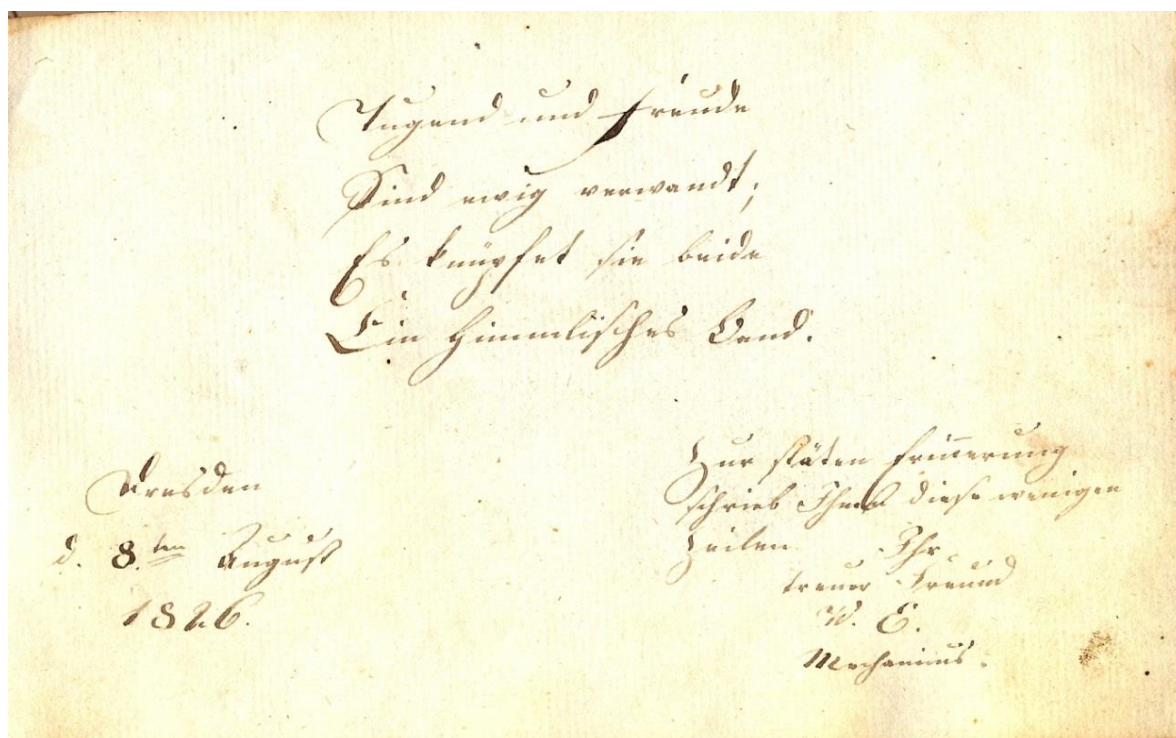 Tugend und Freude
Sind ewig verwandt;
Es knüpfet sie beide
Ein himmlisches Band.
Dresden
d. 8.ten August
1826.
Zur stäten Erinnerung
schrieb Ihnen diese wenigen
Zeilen Ihr
treuer Freund
W. E.